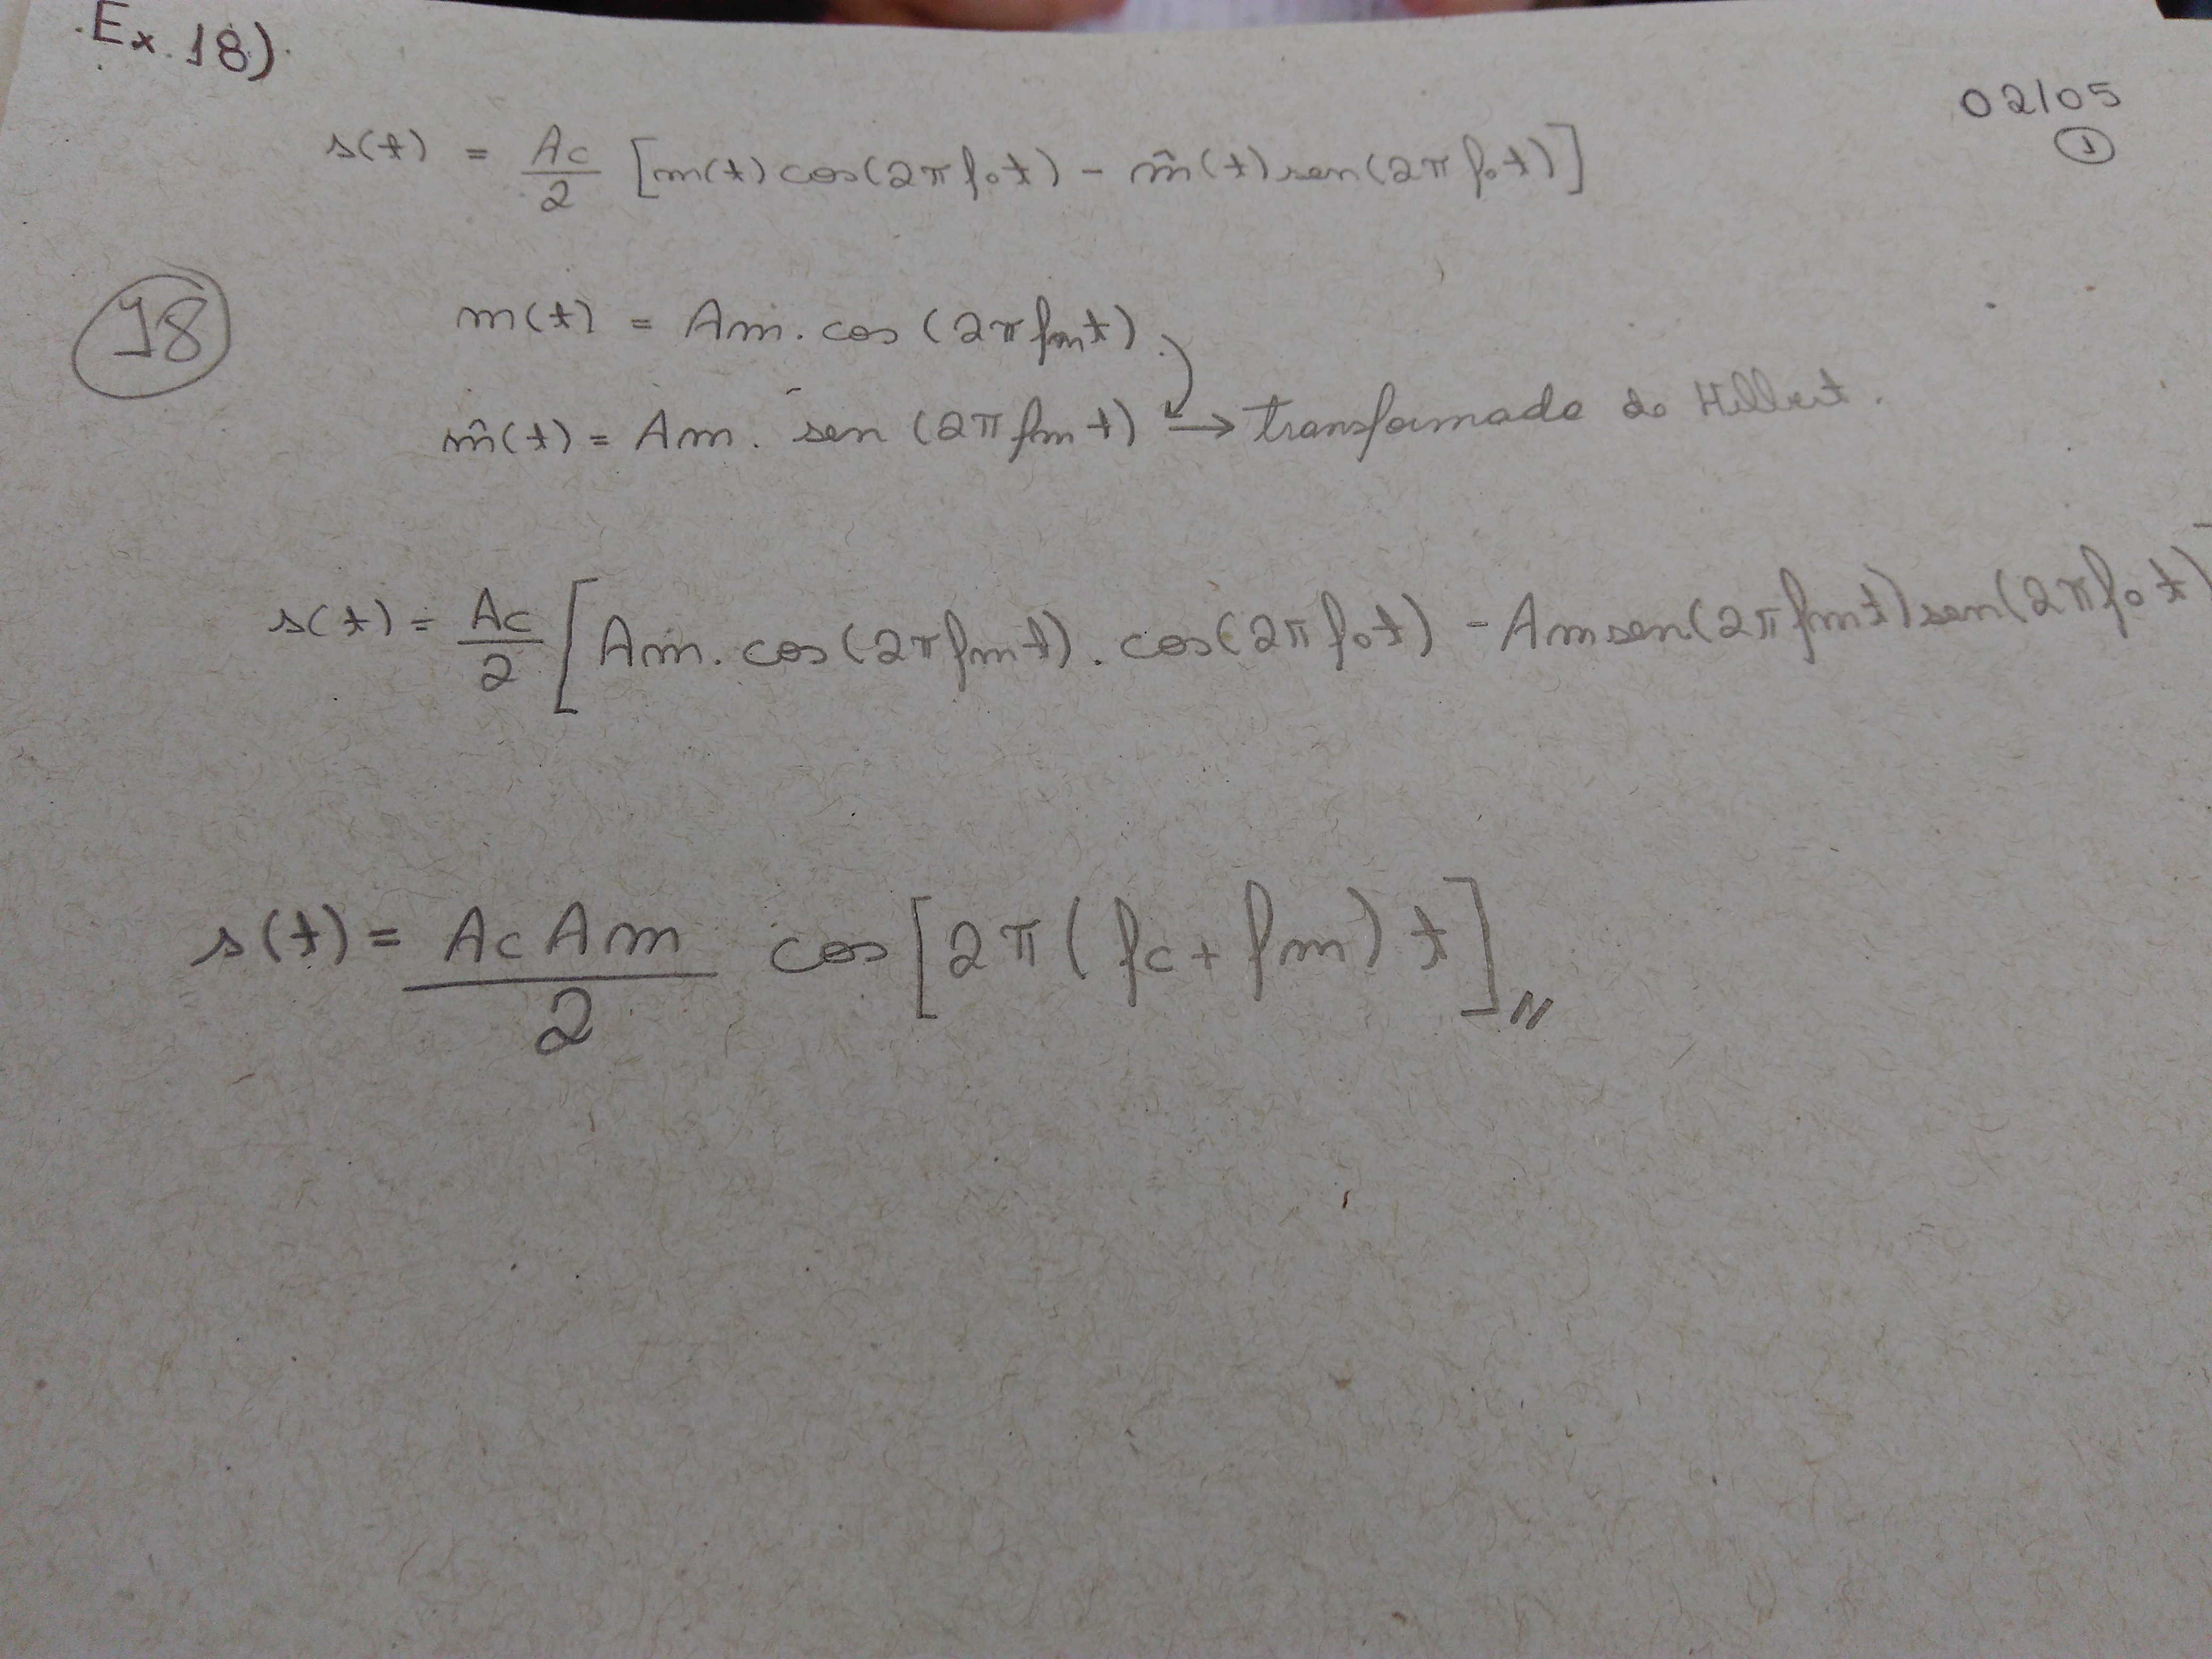 Ex. 18)
02/05
1
s(t) = Ac/2 [m(t) cos(2π f₀ t) - m̂(t) sen(2π f₀ t)]
18
m(t) = Am . cos (2π fm t)
m̂(t) = Am . sen (2π fm t) → transformada de Hilbert.
s(t) = Ac/2 [Am . cos(2π fm t) . cos(2π f₀ t) - Am sen(2π fm t) sen(2π f₀ t)
s(t) = Ac Am/2 cos [2π (fc + fm) t]